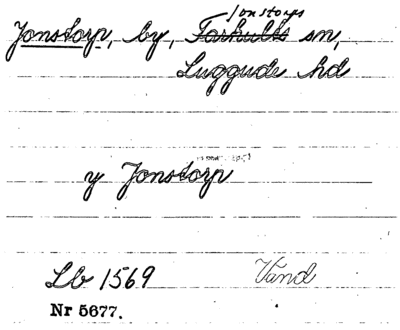 Jonstorps
Jonstorp, by, Farhults sn,
Luggude hd
y Jonstorp
Lb 1569 Vand
Nr 5677.